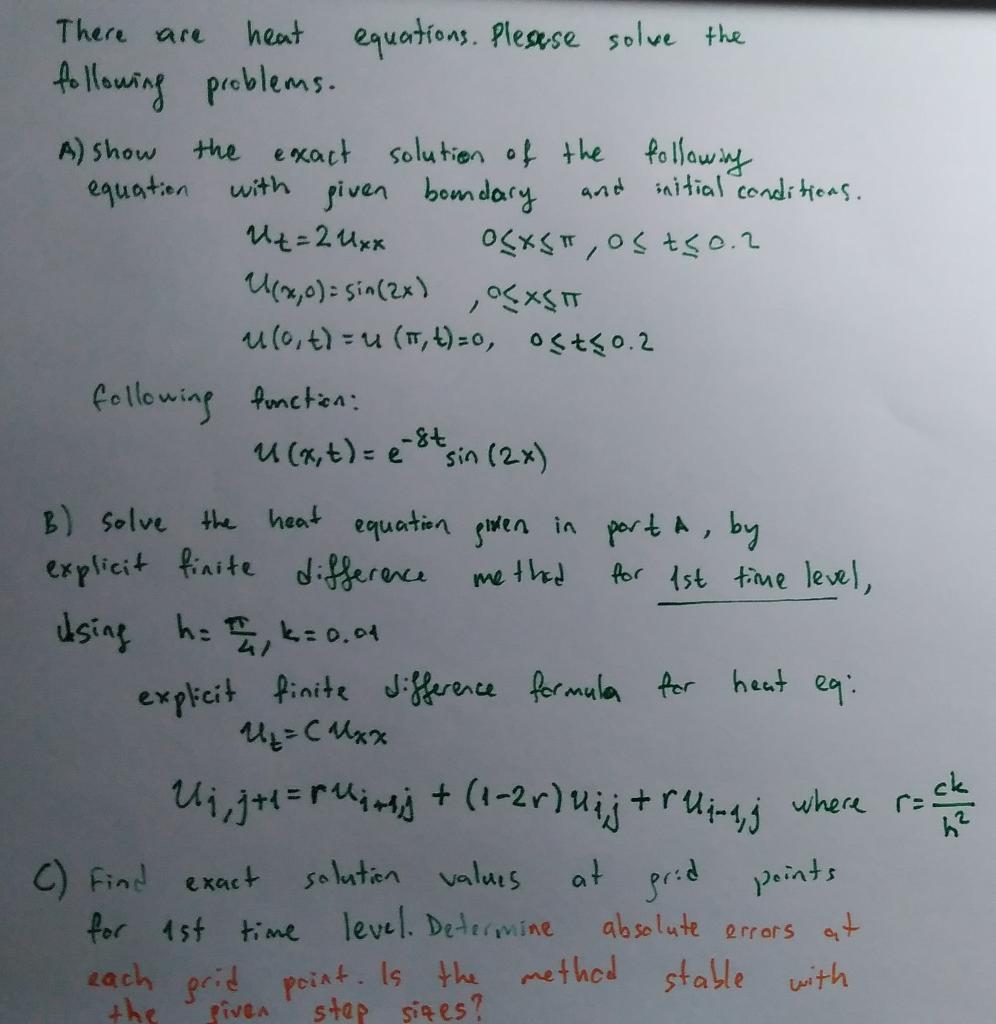 There are heat equations. Plesase solve the
following problems.
A) Show the exact solution of the following
equation with given bomdary and initial conditions.
u_t = 2 u_xx 0≤x≤π, 0≤ t≤0.2
u(x,0) = sin(2x) , 0≤x≤π
u(0,t) = u(π,t)=0, 0≤t≤0.2
following function:
u(x,t) = e^-8t sin(2x)
B) Solve the heat equation given in part A, by
explicit finite difference method for 1st time level,
Using h= π/4, k=0.01
explicit finite difference formula for heat eq:
u_t = C u_xx
u_i,j+1 = r u_i+1,j + (1-2r) u_i,j + r u_i-1,j where r= ck/h²
C) Find exact solution values at grid points
for 1st time level. Determine absolute errors at
each grid point. Is the method stable with
the given step sizes?